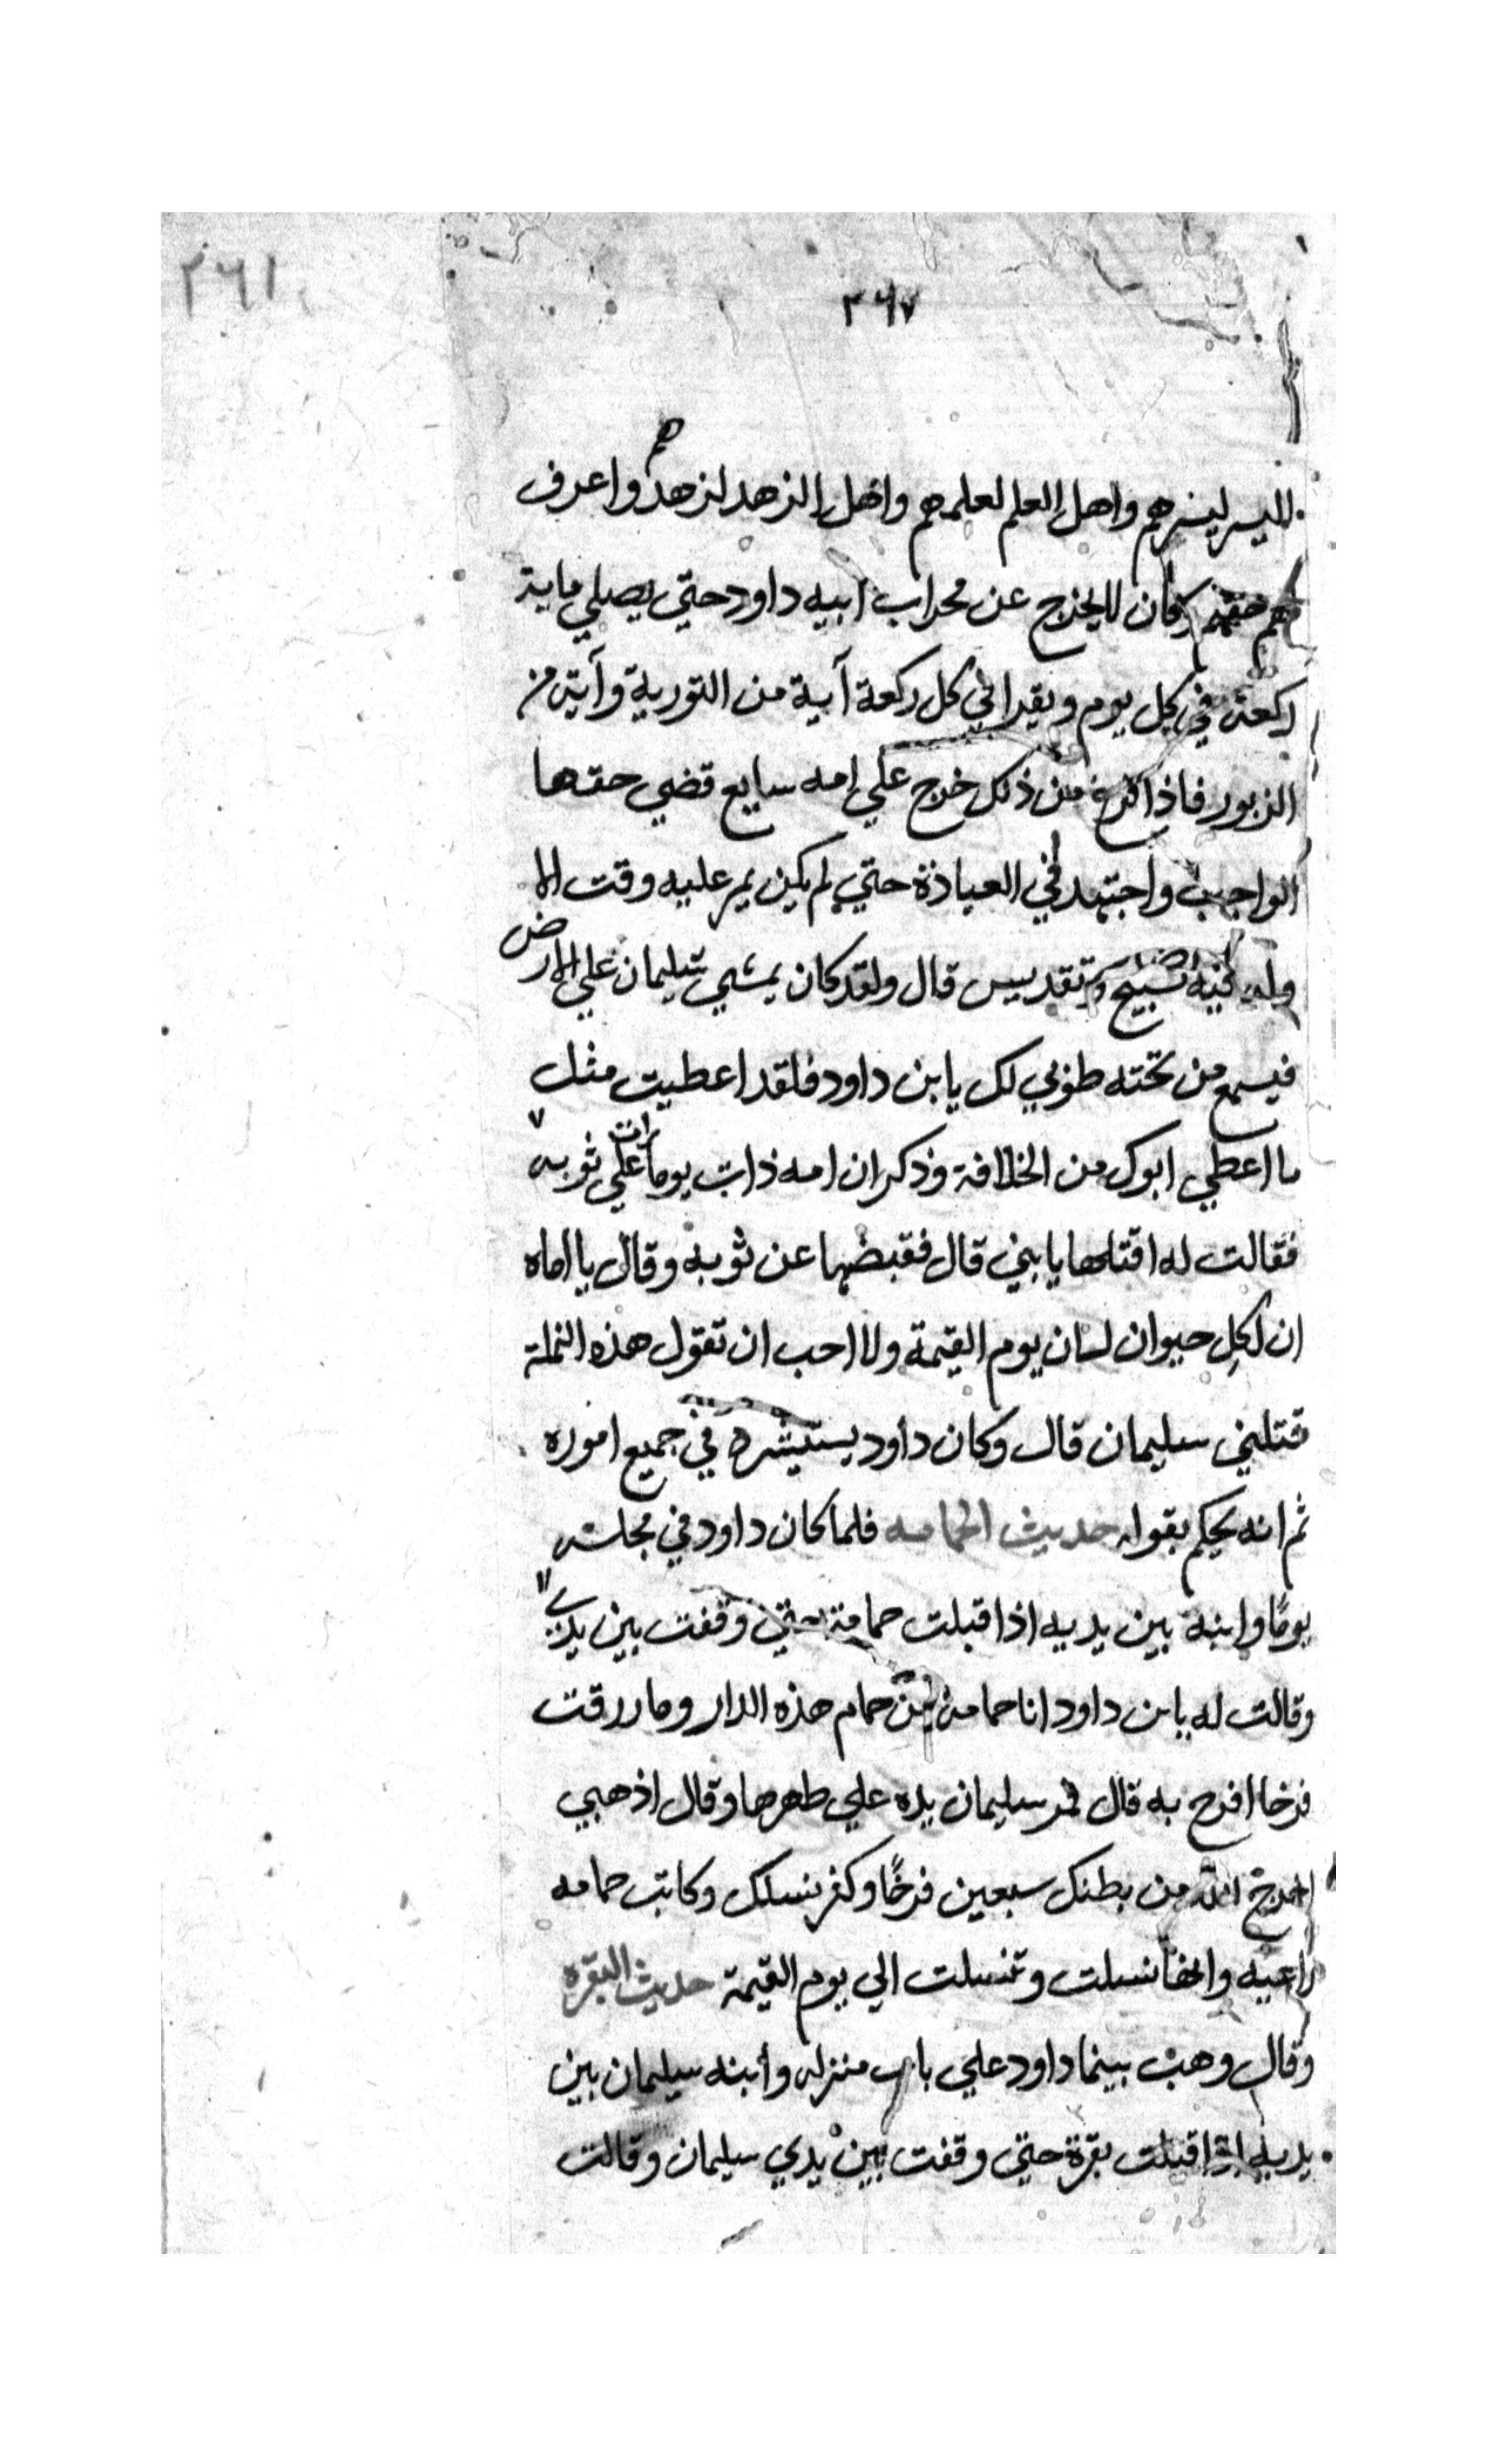 ٢٦١
٢٦٧
اليسر ليسرهم واهل العلم لعلمهم واهل الزهد لزهدهم واعرف
لهم حقهم وكان لا يخرج عن محراب ابيه داود حتي يصلي ماية
ركعة في كل يوم ويقرا في كل ركعة آية من التورية وآية من
الزبور فاذا فرغ من ذلك خرج علي امه سايع قضي حقها
الواجب واجتهد في العبادة حتي لم يكن يمر عليه وقت الا
وله فيه تسبيح وتقديس قال ولقد كان يمشي سليمان علي الارض
فيسمع من تحته طوبي لك يابن داود فلقد اعطيت مثل
ما اعطي ابوك من الخلافة وذكر ان امه ذات يوما رات علي ثوبه
فقالت له اقتلها يا بني قال فقبضها عن ثوبه وقال يا اماه
ان لكل حيوان لسان يوم القيمة ولا احب ان تقول هذه النملة
قتلني سليمان قال وكان داود يستيشره في جميع اموره
ثم انه يحكم بقوله حديث الحمامه فلما كان داود في مجلسه
يومًا وابنه بين يديه اذ اقبلت حمامة حتي وقفت بين يديه
وقالت له يابن داود انا حمامة من حمام هذه الدار وما رزقت
فرخا افرح به قال فمر سليمان يده علي ظهرها وقال اذهبي
اخرج الله من بطنك سبعين فرخًا وكثر نسلك وكانت حمامه
راعبيه وانها نسلت وتنسلت الي يوم القيمة حديث البقره
وقال وهب بينما داود علي باب منزله وابنه سليمان بين
يديه اذ اقبلت بقرة حتي وقفت بين يدي سليمان وقالت